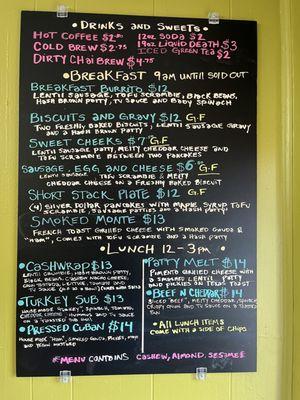 DRINKS AND SWEETS
HOT COFFEE $2.50
12oz SODA $2
COLD BREW $2.75
19oz LIQUID DEATH $3
ICED GREEN TEA $2
DIRTY CHAI BREW $4.75
BREAKFAST 9AM UNTIL SOLD OUT
BREAKFAST BURRITO $12
LENTIL SAUSAGE, TOFU SCRAMBLE, BLACK BEANS,
HASH BROWN PATTY, TU SAUCE AND BABY SPINACH
BISCUITS AND GRAVY $12 G.F
TWO FRESHLY BAKED BISCUITS, LENTIL SAUSAGE GRAVY
AND A HASH BROWN PATTY
SWEET CHEEKS $7 G.F
LENTIL SAUSAGE PATTY, MELTY CHEDDAR CHEESE AND
TOFU SCRAMBLE BETWEEN TWO PANCAKES
SAUSAGE, EGG AND CHEESE $6 G.F
LENTIL SAUSAGE, TOFU SCRAMBLE & MELTY
CHEDDAR CHEESE ON A FRESHLY BAKED BISCUIT
SHORT STACK PLATE $12 G.F
(4) SILVER DOLLAR PANCAKES WITH MAPLE SYRUP TOFU
SCRAMBLE, SAUSAGE PATTIES AND A HASH PATTY
SMOKED MONTE $13
FRENCH TOAST GRILLED CHEESE WITH SMOKED GOUDA &
"HAM", COMES WITH TOFU SCRAMBLE AND A HASH PATTY
LUNCH 12-3PM
CASHWRAP $13
LENTIL CRUMBLE, HASH BROWN PATTY,
BLACK BEANS, CASHEW NACHO CHEESE,
TURKEY SUB $13
HOUSE MADE "TURKEY", SPINACH, TOMATO,
CHEDDAR CHEESE, HUMMUS AND TU SAUCE
ON A TOASTED SUB BUN
PRESSED CUBAN $14
HOUSE MADE "HAM", SMOKED GOUDA, PICKLES, MAYO
AND YELLOW MUSTARD
PATTY MELT $14
PIMENTO GRILLED CHEESE WITH
A SEASONED LENTIL PATTY
AND PICKLES ON TEXAS TOAST
BEEF N CHEDDAR $14
SLICED "BEEF", MELTY CHEDDAR,
CRISPY ONION AND TU SAUCE ON A
ALL LUNCH ITEMS
COME WITH A SIDE OF CHIPS
MENU CONTAINS CASHEW, ALMOND, SESAME